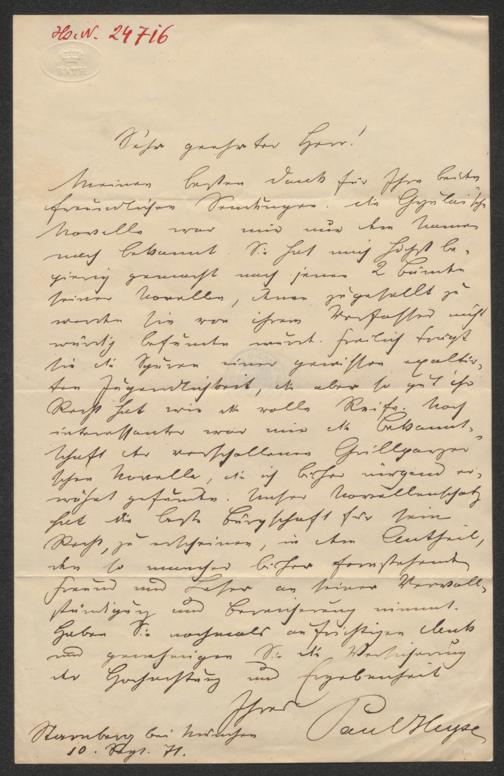 Hs.N. 24716
BATH
Sehr geehrter Herr!
Meinen besten Dank für Ihre beiden
freundlichen Sendungen. die Gyulai'sche
Novelle war mir nur dem Namen
nach bekannt. Sie hat mich höchst be-
gierig gemacht nach jenen 2 Bänden
seiner Novellen, denen zugesellt zu
werden sie von ihrem Verfasser nicht
würdig befunden wurde. Freilich trägt
sie die Spuren einer gewissen exaltir-
ten Jugendlichkeit, die aber so gut ihr
Recht hat wie die volle Reife. Noch
interessanter war mir die Bekannt-
schaft der verschollenen Grillparzer
schen Novelle, die ich bisher nirgend er-
wähnt gefunden. Unser Novellenschatz
hat die beste Bürgschaft für sein
Recht, zu erscheinen, in dem Antheil,
den so mancher bisher fernstehende
Freund und Leser an seiner Vervoll-
ständigung und Bereicherung nimmt.
Haben Sie nochmals aufrichtigen Dank
und genehmigen Sie die Versicherung
der Hochachtung und Ergebenheit
Ihres
Paul Heyse
Starnberg bei München
10. Sept. 71.